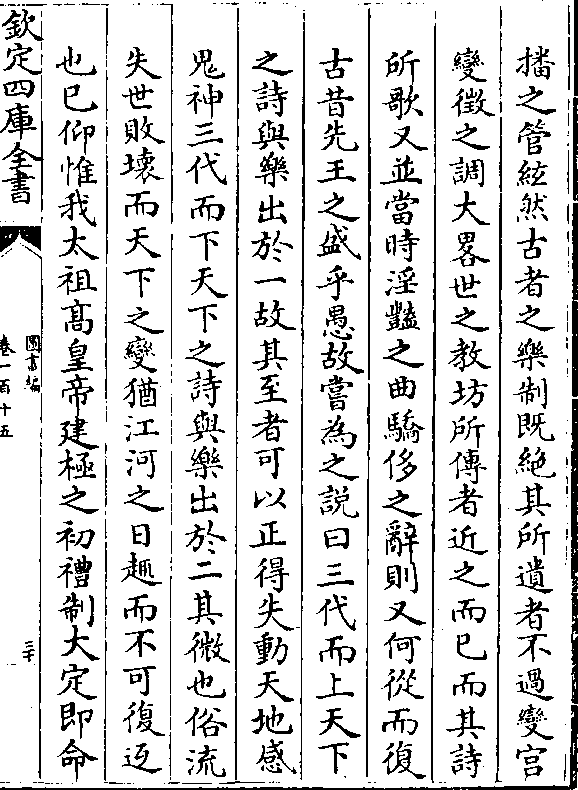 播之管絃然古者之樂制既絶其所遺者不過變宫
變徴之調大畧世之教坊所傳者近之而已而其詩
所歌又並當時淫豔之曲驕侈之辭則又何從而復
古昔先王之盛乎愚故嘗為之説曰三代而上天下
之詩與樂出於一故其至者可以正得失動天地感
鬼神三代而下天下之詩與樂出於二其微也俗流
失世敗壊而天下之變猶江河之日趣而不可復返
也已仰惟我太祖髙皇帝建極之初禮制大定即命
欽定四庫全書
圖書編
卷一百十五
三十